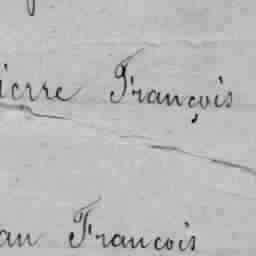 ierre François
an Francois